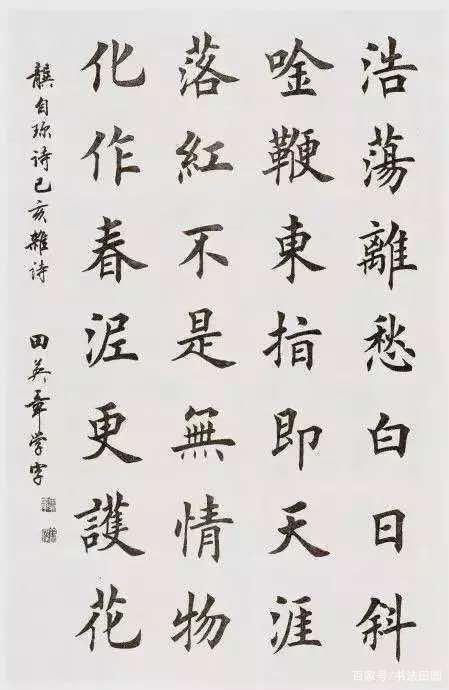 浩蕩離愁白日斜
唫鞭東指即天涯
落紅不是無情物
化作春泥更護花
龔自珎诗己亥雜诗 田英章学字
百家号/书法田园